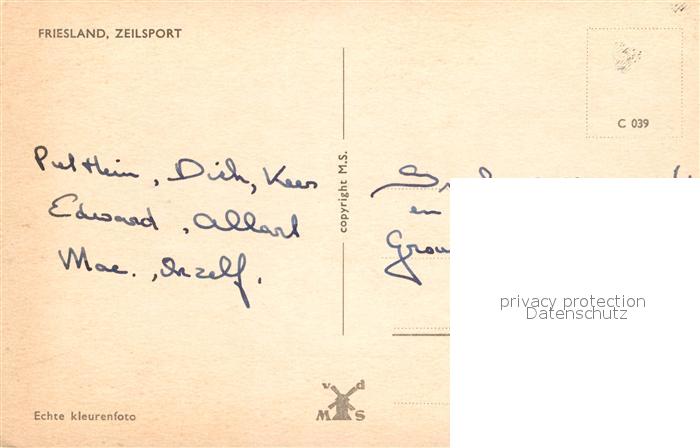 FRIESLAND, ZEILSPORT
C 039
Piet Hein, Dick, Kees
Edward, Allart
Mac.,
copyright M.S.
en
privacy protection
Datenschutz
v d
M S
Echte kleurenfoto